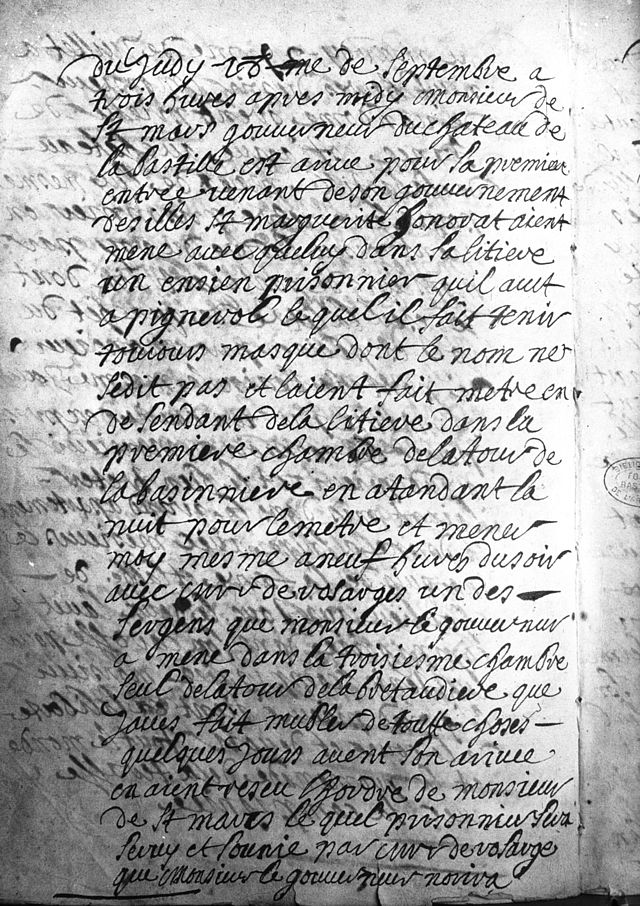 du Judy 18me de Septembre a
trois hures apres midy monsieur de
St mars gouverneur du chateau de
la bastille est arive pour sa premiere
entree venant de son gouvernement
des illes St marguerite honorat aient
mene avec queluy dans sa litiere
un ensien prisonnier quil avet
a pignerol le quel il fait tenir
toujours masque dont le nom ne
se dit pas et laient fait metre en
de sendant de la litiere dans la
premiere chambre de la tour de
la basinniere en atandant la
nuit pour le metre et mener
moy mesme a neuf hures du soir
avec mr de rosarges un des
sergens que monsieur le gouverneur
a mene dans la troisiesme chambre
seul de la tour de la bretaudiere que
javes fait mubler de toutte choses
quelques jours avent son arivee
en aient reseu lhordre de monsieur
de St mars le quel prisonnier sera
servy et sounie par mr de rosarge
que monsieur le gouverneur norira